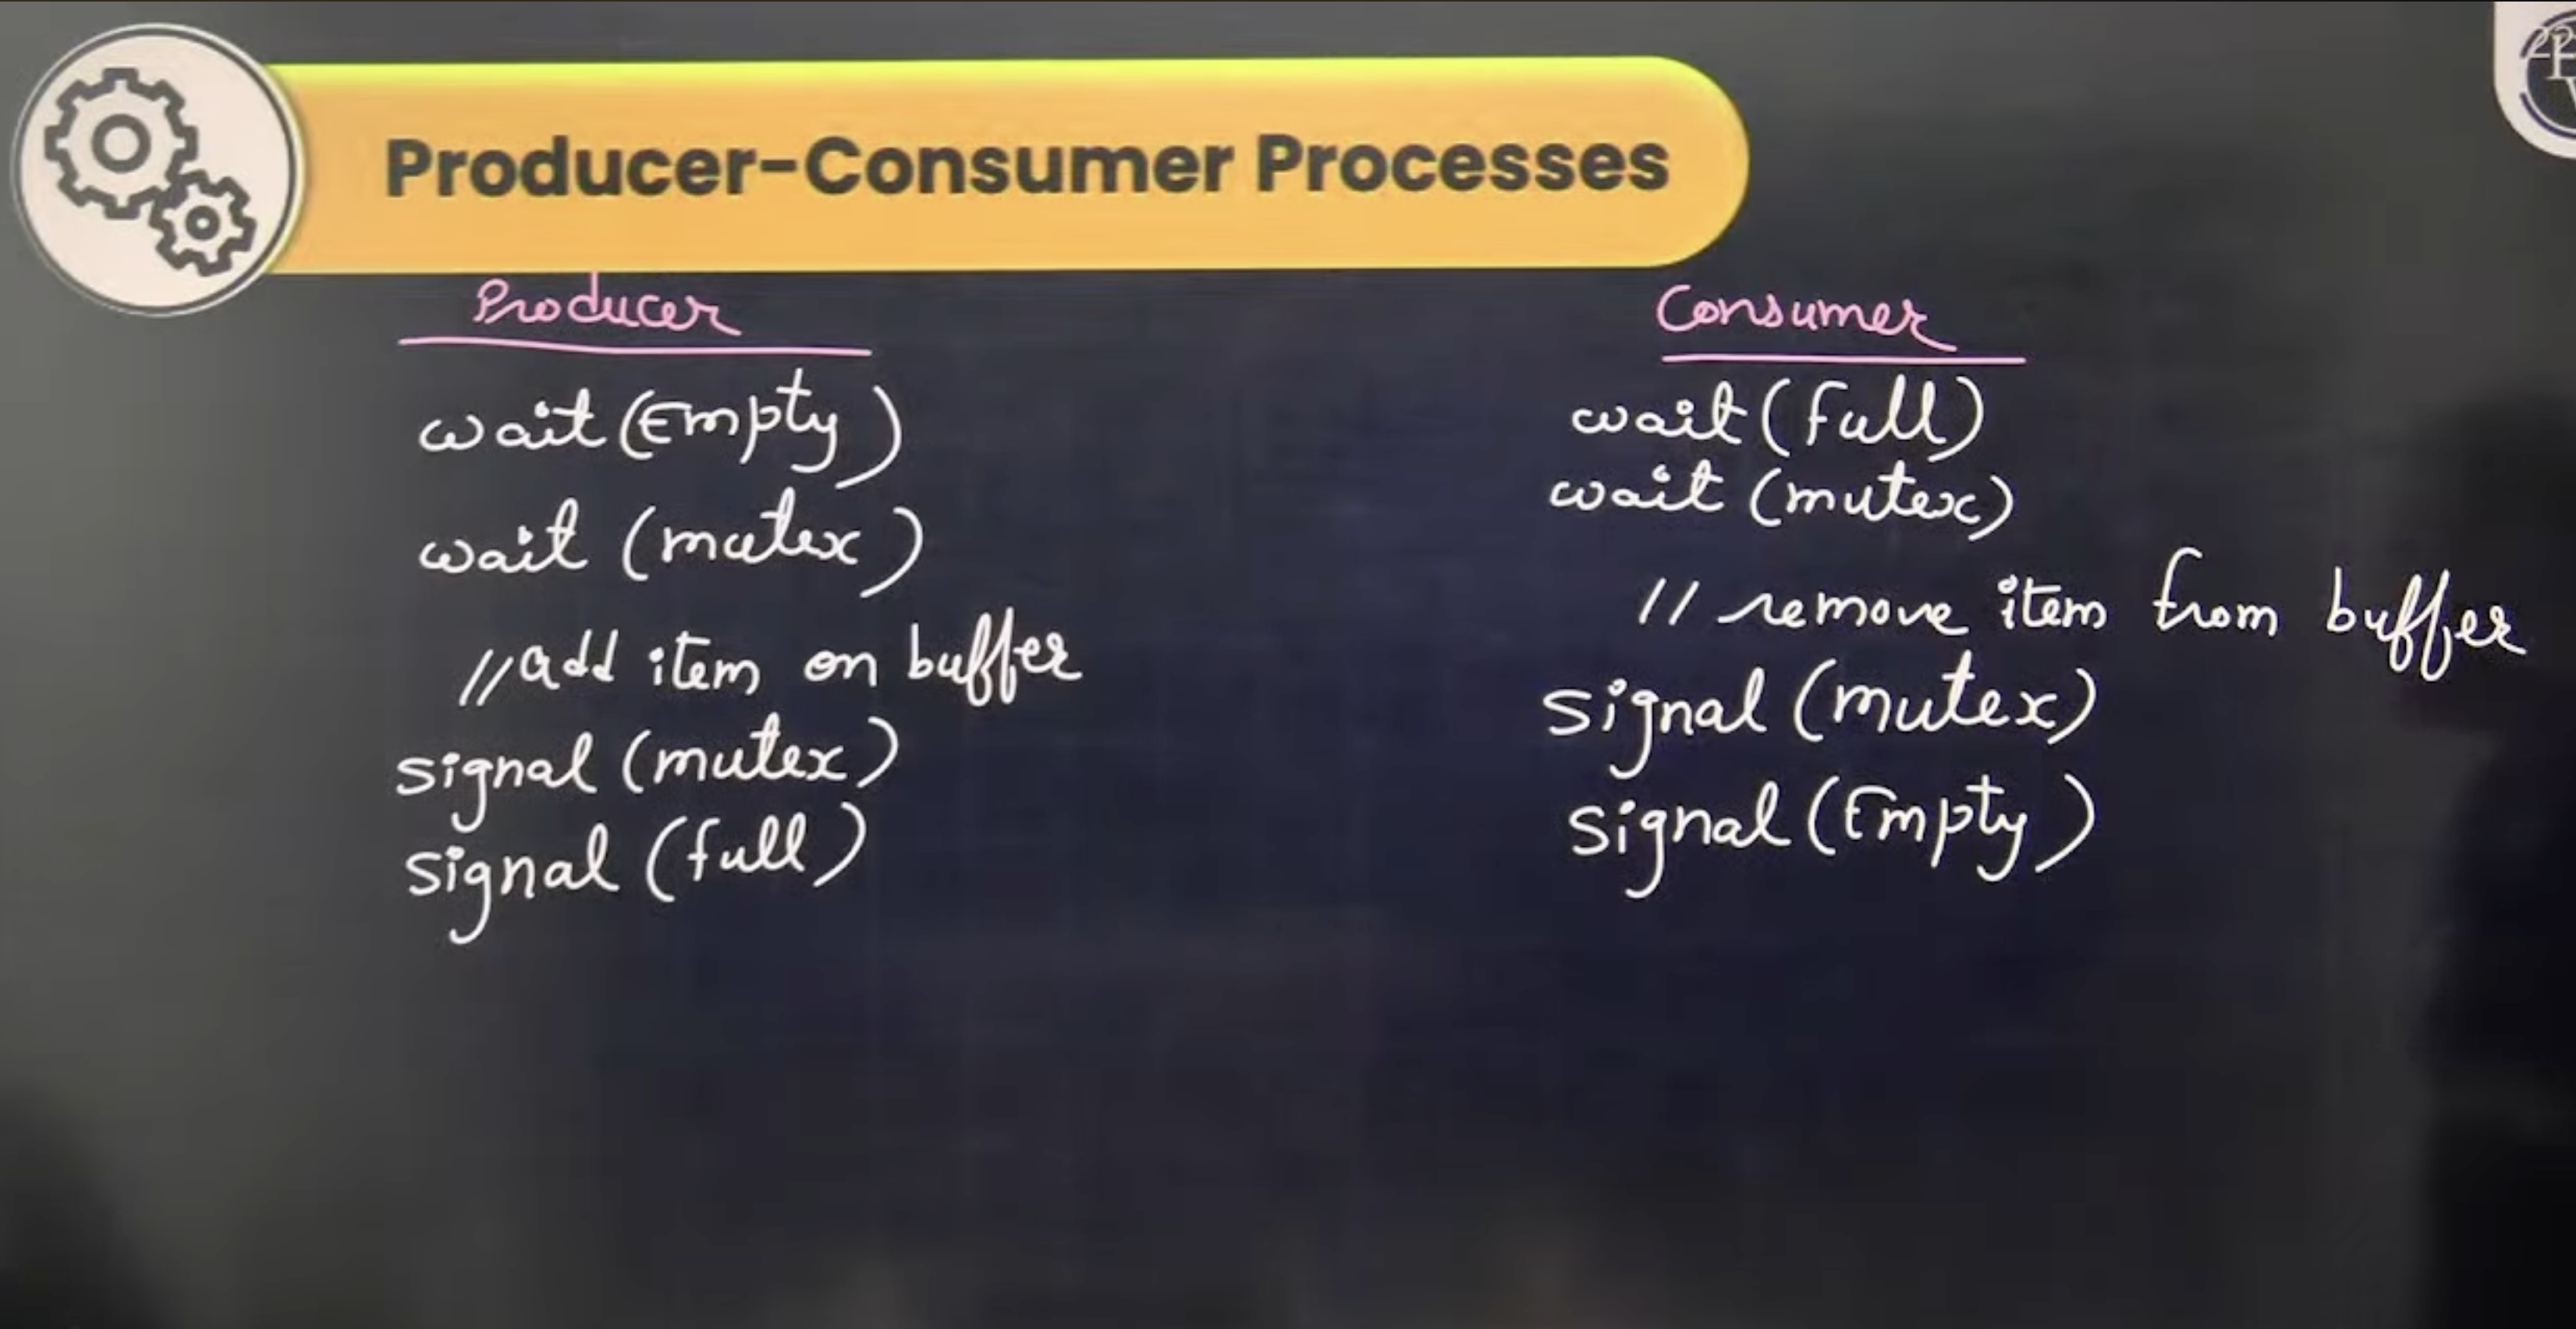 Producer-Consumer Processes
Producer
wait (Empty)
wait (mutex)
//add item on buffer
signal (mutex)
signal (full)
Consumer
wait (full)
wait (mutex)
// remove item from buffer
signal (mutex)
signal (Empty)